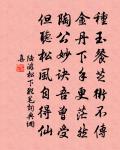 種玉餐芝術不傳
金丹下手更茫然
陶公妙訣吾曾受
但聽松風自得仙
陸游松下縱筆詞典網
集